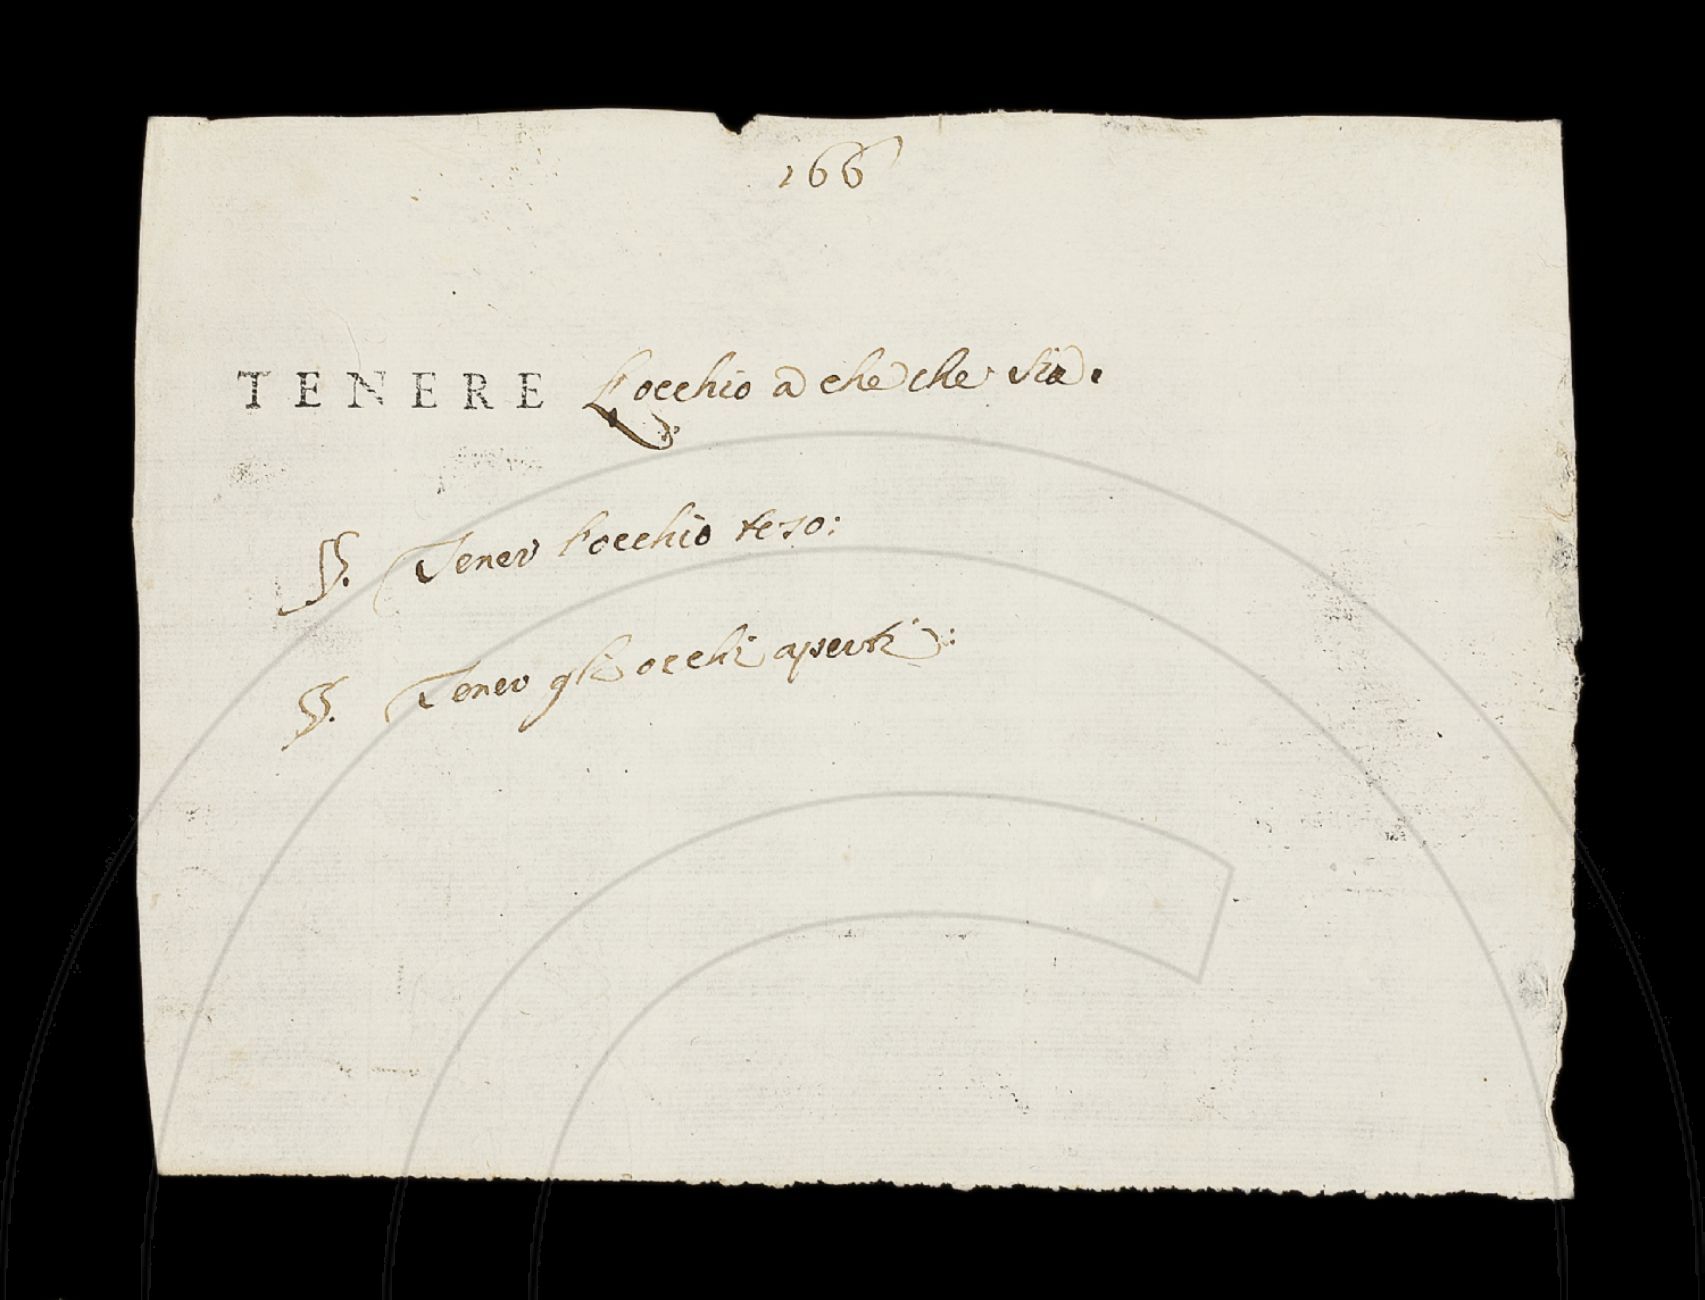 166
TENERE L'occhio a che che sia.
§. Tener l'occhio teso:
§. Tener gli occhi aperti: